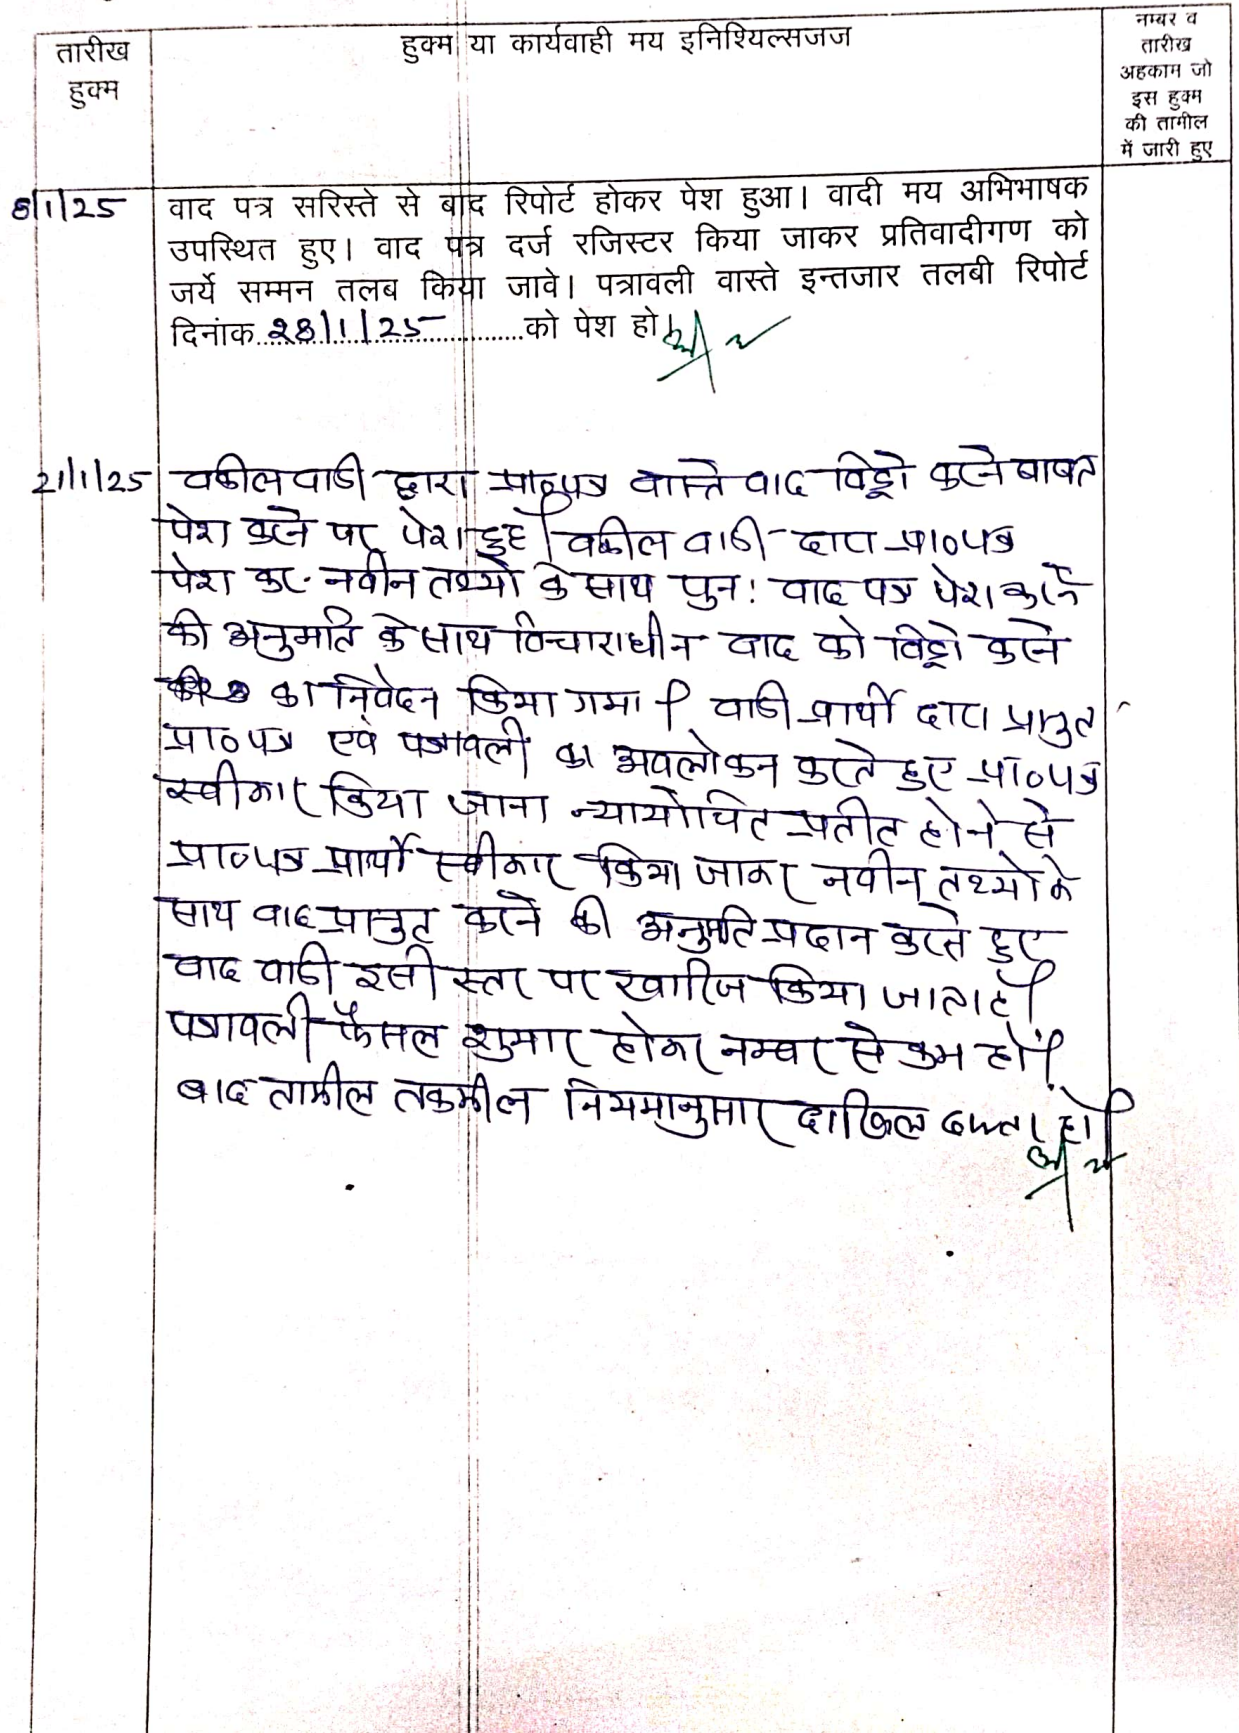 तारीख
हुक्म
हुक्म या कार्यवाही मय इनिश्यिल्सजज
नम्बर व
तारीख
अहकाम जो
इस हुक्म
की तामील
में जारी हुए
8/1/25
वाद पत्र सरिस्ते से बाद रिपोर्ट होकर पेश हुआ। वादी मय अभिभाषक
उपस्थित हुए। वाद पत्र दर्ज रजिस्टर किया जाकर प्रतिवादीगण को
जर्ये सम्मन तलब किया जावे। पत्रावली वास्ते इन्तजार तलबी रिपोर्ट
दिनांक..28/1/25..........को पेश हो।
21/1/25
वकील वादी द्वारा प्रा०पत्र वास्ते वाद विड्रो करने बाबत
पेश करने पर पेश हुई। वकील वादी द्वारा प्रा०पत्र
पेश कर नवीन तथ्यों के साथ पुन: वाद पत्र पेश करने
की अनुमति के साथ विचाराधीन वाद को विड्रो करने
का निवेदन किया गया। वादी प्रार्थी द्वारा प्रस्तुत
प्रा०पत्र एवं पत्रावली का अवलोकन करते हुए प्रा०पत्र
स्वीकार किया जाना न्यायोचित प्रतीत होने से
प्रा०पत्र प्रार्थी स्वीकार किया जाकर नवीन तथ्यो के
साथ वाद प्रस्तुत करने की अनुमति प्रदान करते हुए
वाद वादी इसी स्तर पर खारिज किया जाता है।
पत्रावली फैसल शुमार होकर नम्बर से कम हो।
बाद तामील तकमील नियमानुसार दाखिल दफ्तर हो।